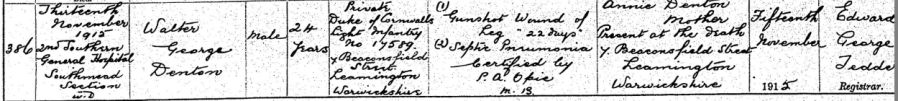 386
Thirteenth
November
1915
2nd Southern
General Hospital
Southmead
Section
U.D
Walter
George
Denton
Male
24
Years
Private
Duke of Cornwalls
Light Infantry
No 17589
7 Beaconsfield
Street
Leamington
Warwickshire
(1)
Gunshot Wound of
Leg "22 days"
(2) Septic Pneumonia
Certified by
P.A. Opie
M.B.
Annie Denton
Mother
Present at the death
7 Beaconsfield Street
Leamington
Warwickshire
Fifteenth
November
1915
Edward
George
Tedde
Registrar.